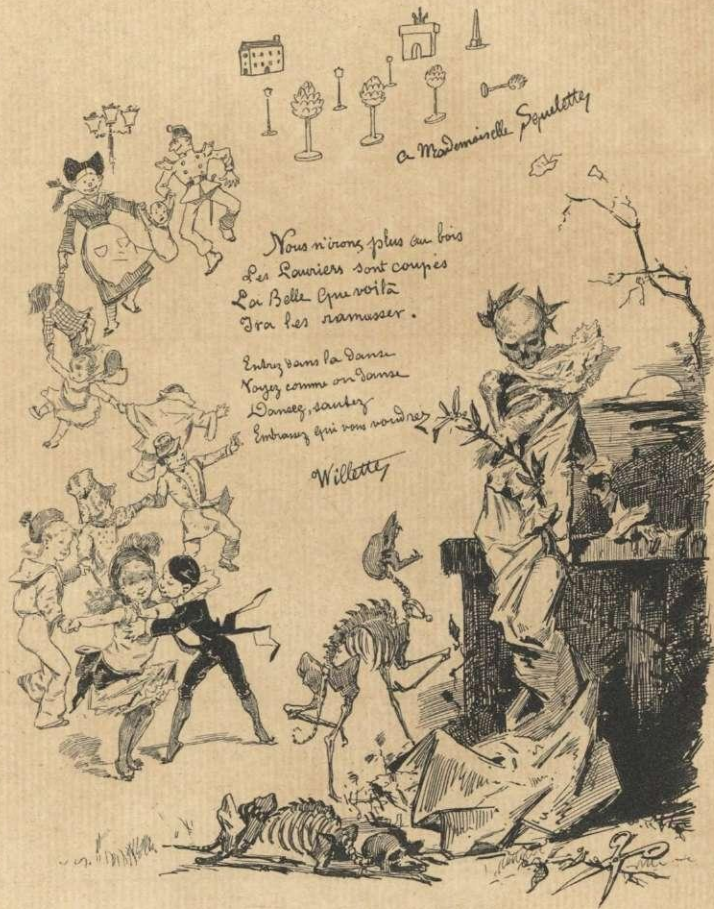 a Mademoiselle Squelette
Nous n'irons plus au bois
Les Lauriers sont coupés
La Belle que voilà
Ira les ramasser.
Entrez dans la danse
Voyez comme on danse
Dansez, sautez
Embrassez qui vous voudrez
Willette